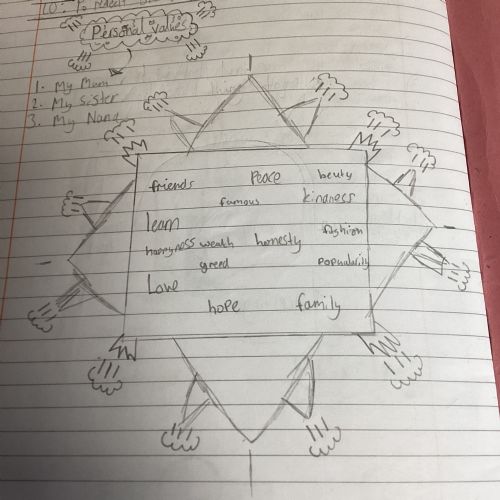 LO:
Personal values
1. My Mom
2. My Sister
3. My Nana
friends Peace beuty
famous kindness
learn
happyness wealth honesty fashion
greed popularity
Love
hope family